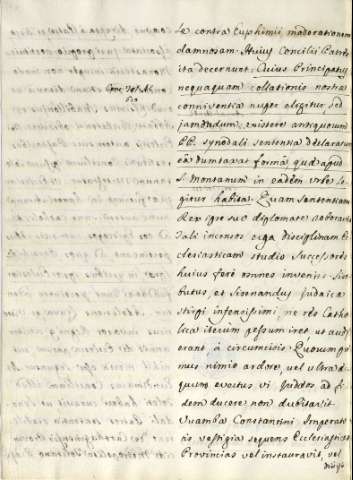 Le contra Euphimii maderationem
damnosam. Huius Concilii Patres
ita decernunt: Cuius Principatus
nequaquam collationis nostrae
conniventia nuper eligitur, sed
jamdudum existere antiquorum
PP. synodali sententia declaratur
eâ duntaxat formâ quâ apud
S. Montanum in eâdem Urbe le-
gitur habita. Quam sententiam
Rex ipse suo diplomate roboravit.
Tali incensos erga disciplinam Ec-
clesiasticam studio Successores
huius ferè omnes invenies. Sise-
butus, et Sisenandus Judaicae
stirpi infensissimi ne rês Catho-
lica iterum pessum iret ut aud-
erant à circumcisis. Quorum pri-
mus nimio ardore, vel ultra d
quum evectus vi Judæos ad Fi-
dem ducere non dubitavit.
Wamba Constantini Imperato-
ris vestigia sequens Ecclesiasticas
Provincias vel instauravit, vel